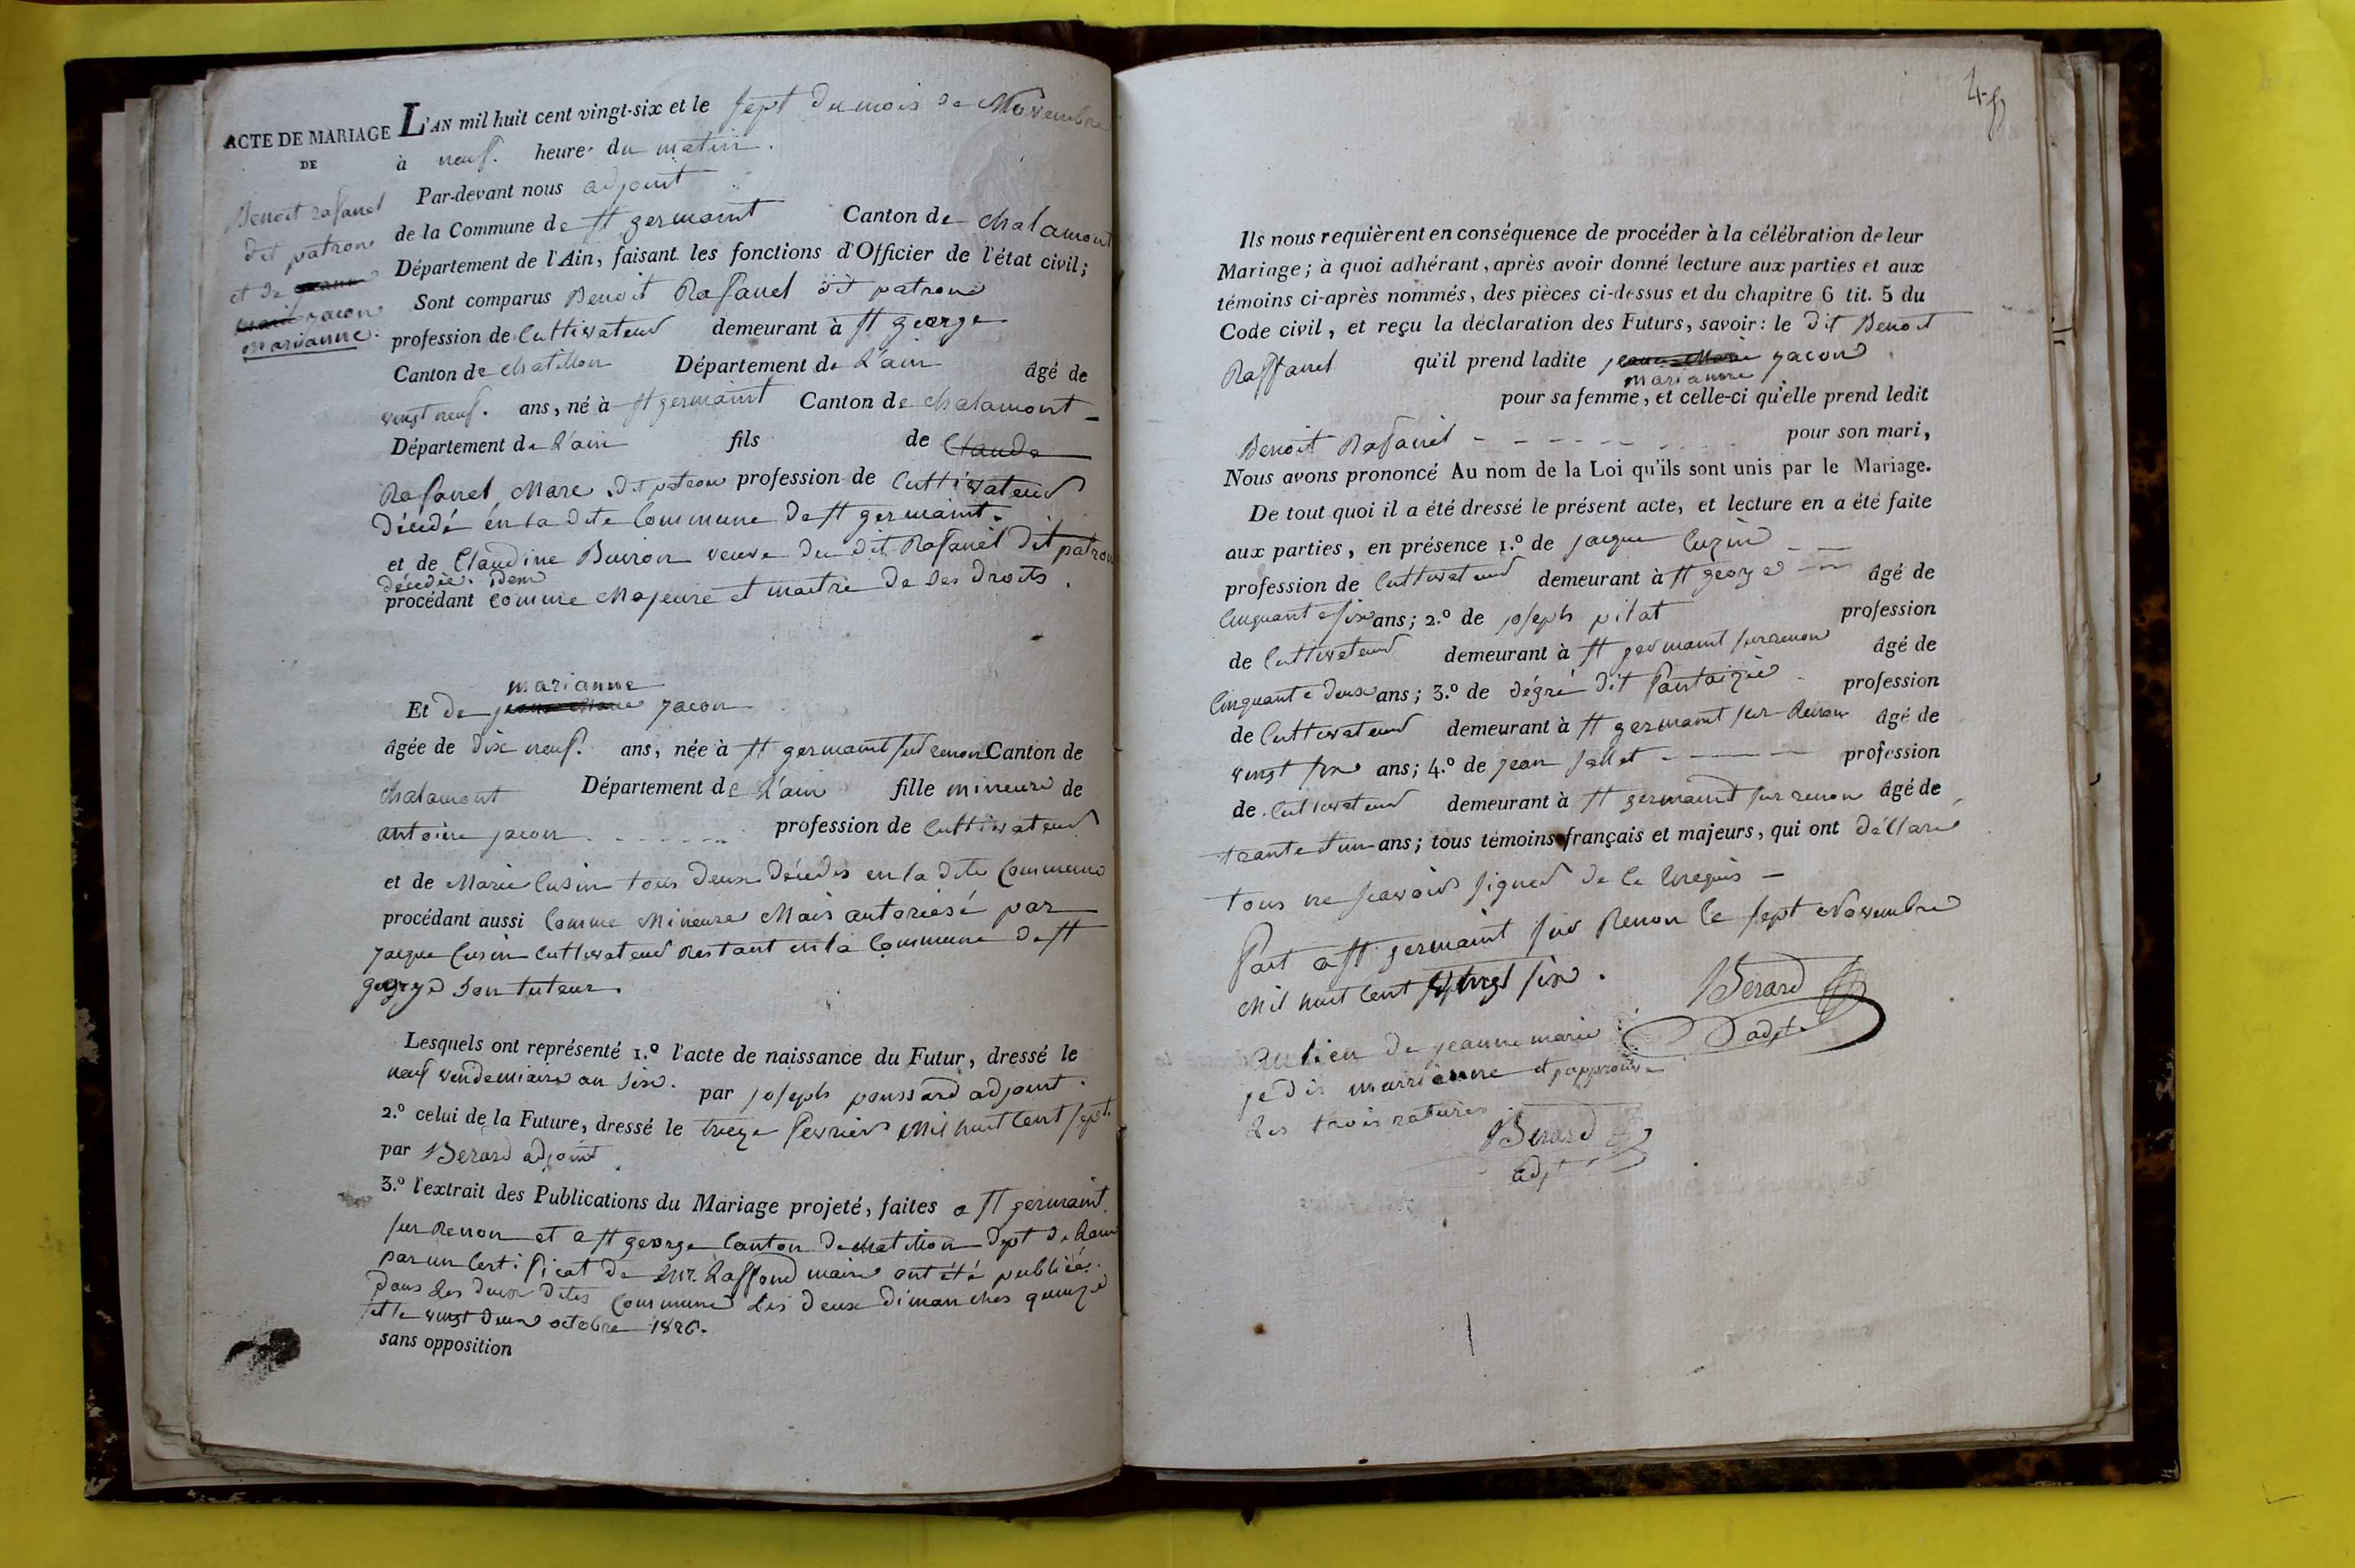 ACTE DE MARIAGE
DE
Benoit rafanel
dit patron
et de
jacon
marianne.
L'AN mil huit cent vingt-six et le sept du mois de Novembre
à neuf. heure du matin.
Par-devant nous adjoint
de la Commune de st germaint Canton de chalamont
Département de l'Ain, faisant les fonctions d'Officier de l'état civil;
Sont comparus Benoit Rafanel dit patron
profession de Cultivateur demeurant à st george
Canton de chatillon Département de L'ain âgé de
vingt neuf. ans, né à st germaint Canton de chalamont
Département de L'ain fils de Claude
Rafanel Marc dit patron profession de Cultivateur
décédé en la dite Commune de st germaint.
et de Claudine Buiron veuve du dit Rafanel dit patron
décédée. idem
procédant comme Majeure et maitre de ses droits.
marianne
Et de jeanne Marie jacon
âgée de dix neuf. ans, née à st germaint sur renon Canton de
chalamont Département de L'ain fille mineure de
antoine jacon profession de Cultivateur
et de Marie Cusin tous deux décédés en la dite Commune
procédant aussi Comme Mineure Mais autorisé par
jacque Cusin Cultivateur Restant en la Commune de st
george Son tuteur.
Lesquels ont représenté 1.º l'acte de naissance du Futur, dressé le
neuf vendemiaire an six. par joseph poussard adjoint.
2.º celui de la Future, dressé le treize fevrier Mil huit Cent sept
par Berard adjoint
3.º l'extrait des Publications du Mariage projeté, faites a st germaint
sur Renon et a st george Canton de chatillon dept de Lain
par un Certificat de Mr. Laffond maire ont été publiées
dans les deux dites Commune les deux dimanches quinze
et le vingt deux octobre 1826.
sans opposition
Ils nous requièrent en conséquence de procéder à la célébration de leur
Mariage; à quoi adhérant, après avoir donné lecture aux parties et aux
témoins ci-après nommés, des pièces ci-dessus et du chapitre 6 tit. 5 du
Code civil, et reçu la déclaration des Futurs, savoir: le dit Benoit
Raffanel qu'il prend ladite jeanne Marie jacon
marianne
pour sa femme, et celle-ci qu'elle prend ledit
Benoit Rafanel pour son mari,
Nous avons prononcé Au nom de la Loi qu'ils sont unis par le Mariage.
De tout quoi il a été dressé le présent acte, et lecture en a été faite
aux parties, en présence 1.º de jacque Cuzin
profession de Cultivateur demeurant à st george âgé de
Cinquante six ans; 2.º de joseph pilat profession
de Cultivateur demeurant à st germaint sur renon âgé de
Cinquante deux ans; 3.º de dégré dit fantaizie profession
de Cultivateur demeurant à st germaint sur Renon âgé de
vingt six ans; 4.º de jean sallet profession
de Cultivateur demeurant à st germaint sur renon âgé de
trante d'un ans; tous témoins français et majeurs, qui ont déclaré
tous ne scavoir signer de ce Enquis
Fait a st germaint sur Renon le sept Novembre
Mil huit Cent vingt six.
Berard
adjt
au lien de jeanne marie
je dis marrianne et japprouve
Les trois ratures
Berard
adjt